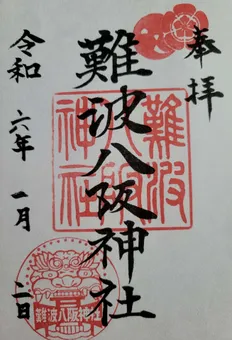 奉拝
難波八阪神社
難波八阪神社
令和六年一月二日
難波八阪神社